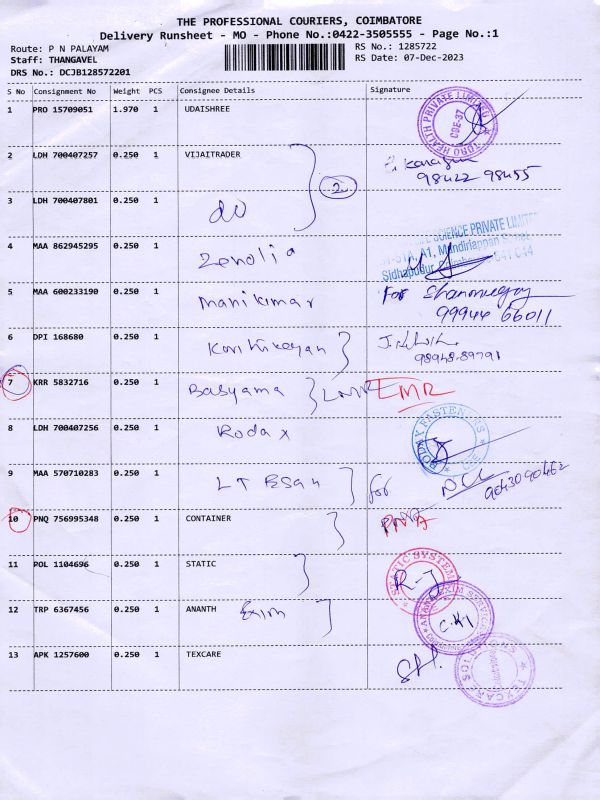 THE PROFESSIONAL COURIERS, COIMBATORE
Delivery Runsheet - MO - Phone No.:0422-3505555 - Page No.:1
Route: P N PALAYAM
RS No.: 1285722
Staff: THANGAVEL
RS Date: 07-Dec-2023
DRS No.: DCJB128572201
S No Consignment No Weight PCS Consignee Details Signature
1 PRO 15709051 1.970 1 UDAISHREE
2 LDH 700407257 0.250 1 VIJAITRADER
2
98422 98455
3 LDH 700407801 0.250 1 do
4 MAA 862945295 0.250 1 Zenolia
SCIENCE PRIVATE LIMITED
5 MAA 600233190 0.250 1 manikumar For
99944 66011
6 DPI 168680 0.250 1 Karthikeyan
98948.89791
7 KRR 5832716 0.250 1 Basyama EMR
8 LDH 700407256 0.250 1 Rodax
9 MAA 570710283 0.250 1 LT Esan for
9043090462
10 PNQ 756995348 0.250 1 CONTAINER
11 POL 1104696 0.250 1 STATIC
STATIC SYSTEM
12 TRP 6367456 0.250 1 ANANTH Exim
C.K1
13 APK 1257600 0.250 1 TEXCARE